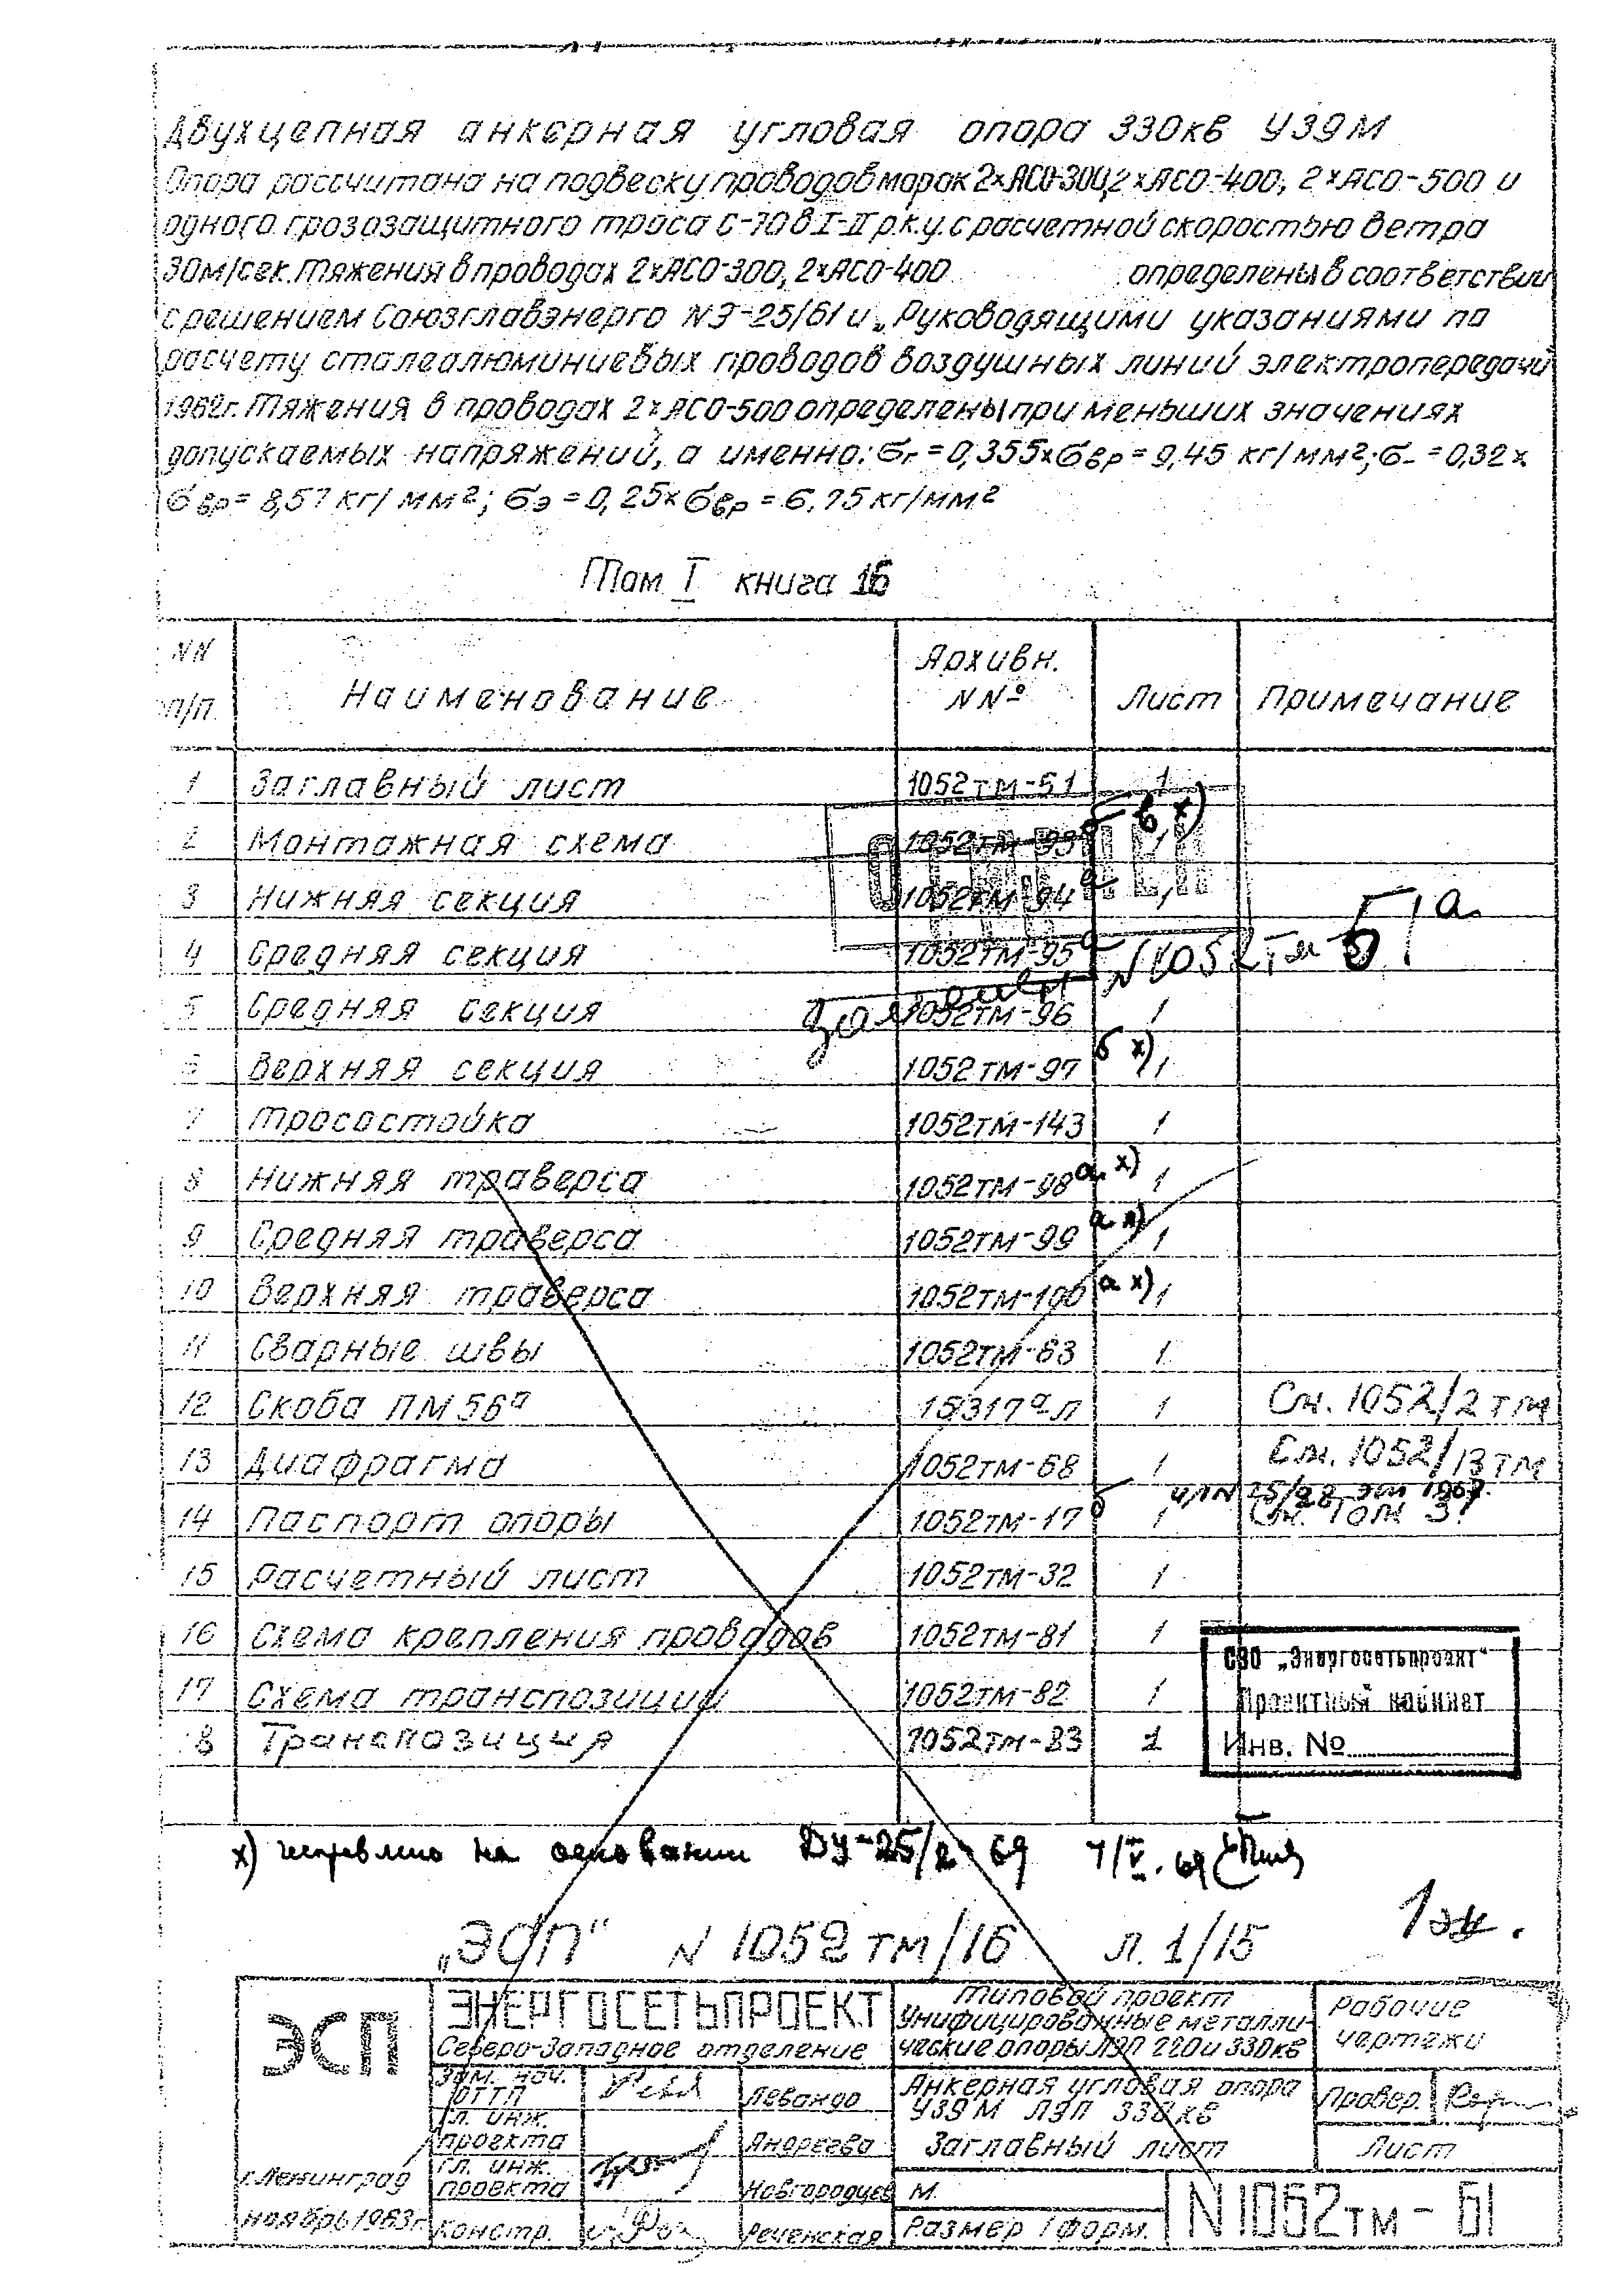 Двухцепная анкерная угловая опора 330кв У39М
Опора рассчитана на подвеску проводов марок 2×АСО-300, 2×АСО-400, 2×АСО-500 и
одного грозозащитного троса С-70 в I-II р.к.у. с расчетной скоростью ветра
30м/сек. Тяжения в проводах 2×АСО-300, 2×АСО-400 определены в соответствии
с решением Союзглавэнерго NЭ-25/61 и „Руководящими указаниями по
расчету сталеалюминиевых проводов воздушных линий электропередачи
1962г. Тяжения в проводах 2×АСО-500 определены при меньших значениях
допускаемых напряжений, а именно: σг = 0,355×σвр = 9,45 кг/мм²; σ- = 0,32×
σвр = 8,57 кг/мм²; σэ = 0,25×σвр = 6,75 кг/мм²
Том I книга 16
NN п/п Наименование Архивн. NNº Лист Примечание
1 Заглавный лист 1052тм-61 1
2 Монтажная схема 1052тм-93 б в х) 1
3 Нижняя секция 1052тм-94 а 1
4 Средняя секция 1052тм-95 а
5 Средняя секция 1052тм-96 1
6 Верхняя секция 1052тм-97 б х) 1
7 Тросостойка 1052тм-143 1
8 Нижняя траверса 1052тм-98 а х) 1
9 Средняя траверса 1052тм-99 а х) 1
10 Верхняя траверса 1052тм-100 а х) 1
11 Сварные швы 1052тм-63 1
12 Скоба ПМ56а 15317а-л 1 См. 1052/2тм
13 Диафрагма 1052тм-68 1 См. 1052/13тм
14 Паспорт опоры 1052тм-17 б 1 См. Том 3
15 Расчетный лист 1052тм-32 1
16 Схема крепления проводов 1052тм-81 1
17 Схема транспозиции 1052тм-82 1
18 Транспозиция 1052тм-83 1
ОТМЕНЕН
заменен N1052тм-61а
СЗО „Энергосетьпроект“
Проектный кабинет
Инв. №
х) исправлено на основании ДУ-25/2-69 7/V.69
„ЭСП“ N 1052тм/16 л. 1/15
1эк.
ЭСП
г.Ленинград
ноябрь 1963г.
ЭНЕРГОСЕТЬПРОЕКТ
Северо-Западное отделение
Типовой проект
Унифицированные металли-
ческие опоры ЛЭП 220 и 330кв
Рабочие
чертежи
Зам. нач. ОТТП Левандо
Гл. инж. проекта Андреева
Гл. инж. проекта Новгородцев
Констр. Реченская
Анкерная угловая опора
У39М ЛЭП 330кв
Заглавный лист
Провер.
Лист
М.
Размер 1 форм.
N1052тм-61